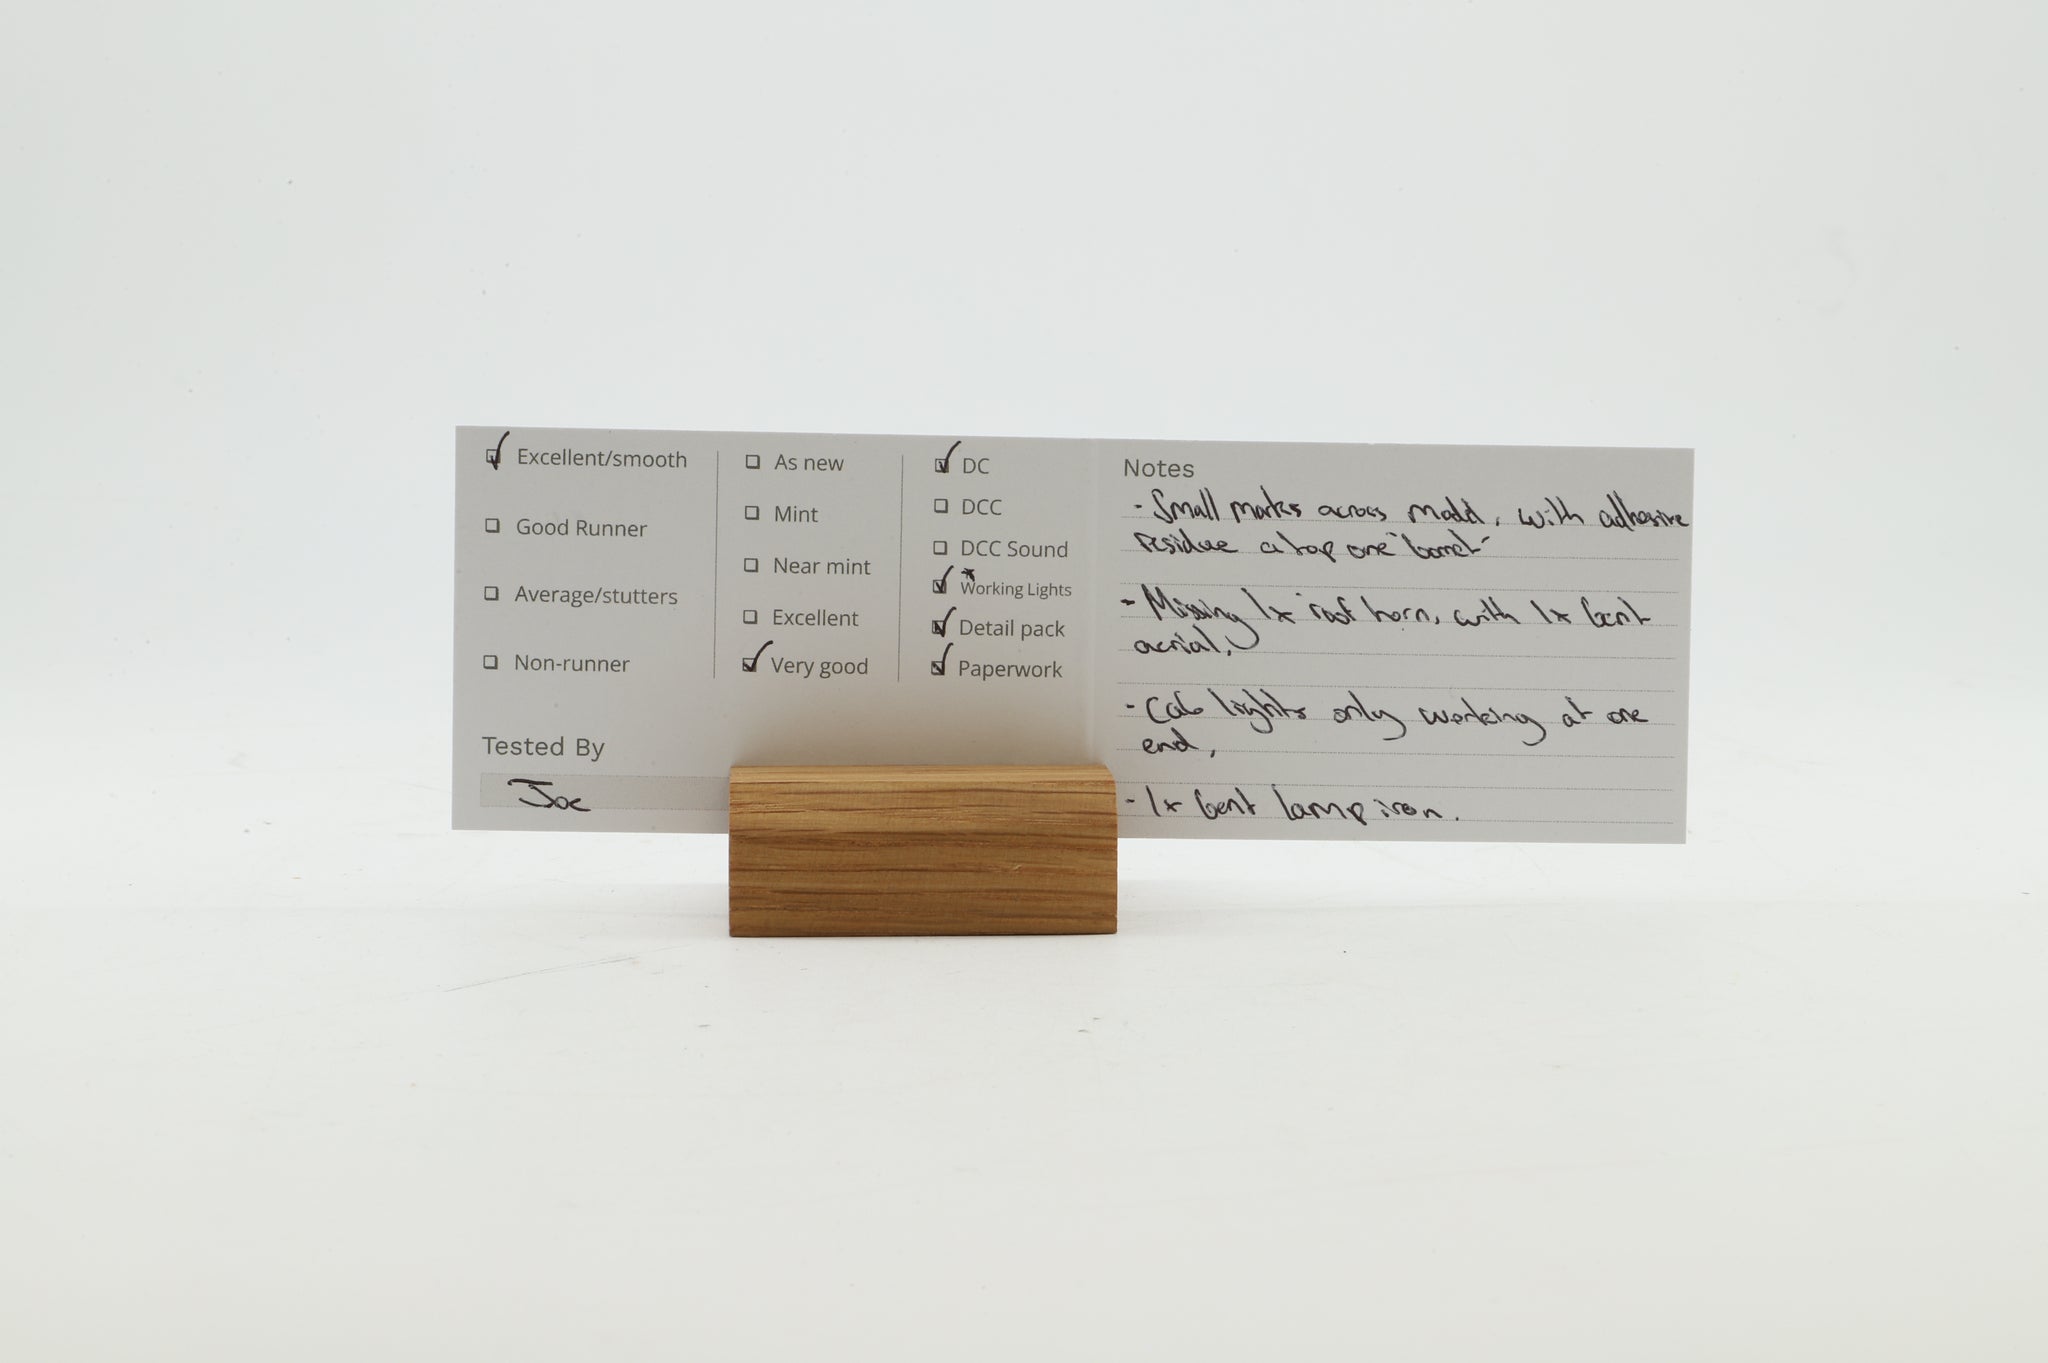 Excellent/smooth
Good Runner
Average/stutters
Non-runner
Tested By
Joe
As new
Mint
Near mint
Excellent
Very good
DC
DCC
DCC Sound
*
Working Lights
Detail pack
Paperwork
Notes
- Small marks across model, with adhesive
residue atop one "bonnet"
- Missing 1x roof horn, with 1x bent
aerial.
- Cab lights only working at one
end,
- 1x bent lamp iron.